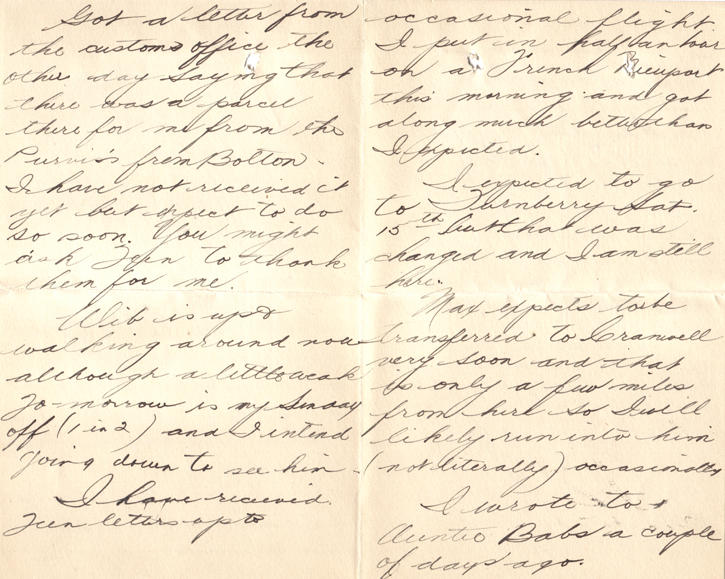 Got a letter from
the customs office the
other day saying that
there was a parcel
there for me from the
Purvis's from Bolton.
I have not received it
yet but expect to do
so soon. You might
ask Jean to thank
them for me.
Wib is up &
walking around now
although a little weak
To-morrow is my Sunday
off (1 in 2) and I intend
going down to see him.
I have received
letters up to
occasional flight
I put in half an hour
on a French Nieuport
this morning and got
along much better than
I expected.
I expected to go
to Turnberry Sat.
15th but that was
changed and I am still
here.
Max expects to be
transferred to Cranwell
very soon and that
is only a few miles
from here so I will
likely run into him
(not literally) occasionally
I wrote to
Auntie Babs a couple
of days ago.